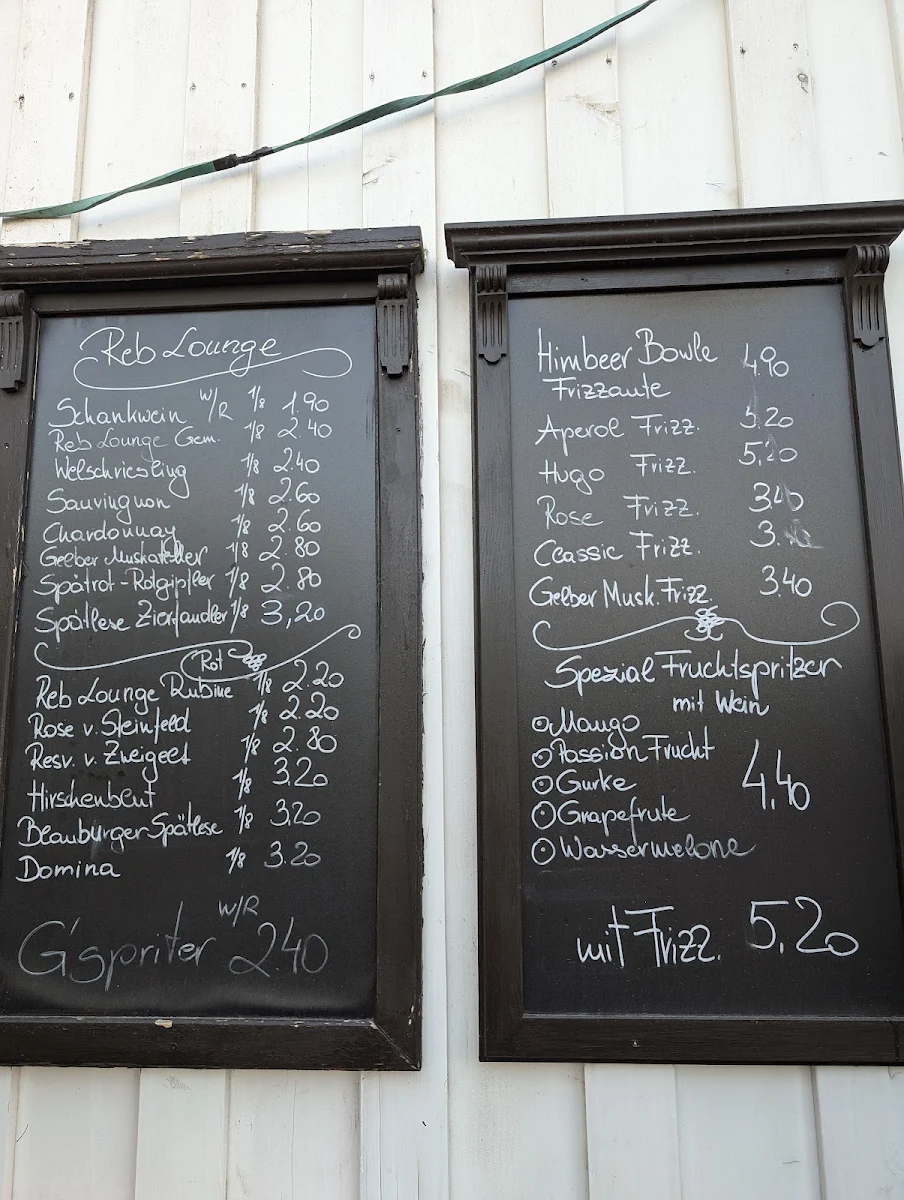 Reb Lounge
Schankwein W/R 1/8 1.90
Reb Lounge Gem. 1/8 2.40
Welschriesling 1/8 2.40
Sauvingnon 1/8 2.60
Chardonnay 1/8 2.60
Gelber Muskateller 1/8 2.80
Spätrot-Rotgipfler 1/8 2.80
Spätlese Zierfandler 1/8 3,20
Rot
Reb Lounge Rubine 1/8 2.20
Rose v. Steinfeld 1/8 2.20
Resv. v. Zweigelt 1/8 2.80
Hirschenblut 1/8 3.20
Blauburger Spätlese 1/8 3.20
Domina 1/8 3.20
W/R
G'spriter 2.40
Himbeer Bowle 4.90
Frizzante
Aperol Frizz. 5.20
Hugo Frizz. 5,20
Rose Frizz. 3.40
Classic Frizz. 3.
Gelber Musk. Frizz. 3.40
Spezial Fruchtspritzer
mit Wein
Mango
Passion Frucht
Gurke 4,40
Grapefrute
Wassermelone
mit Frizz. 5,20